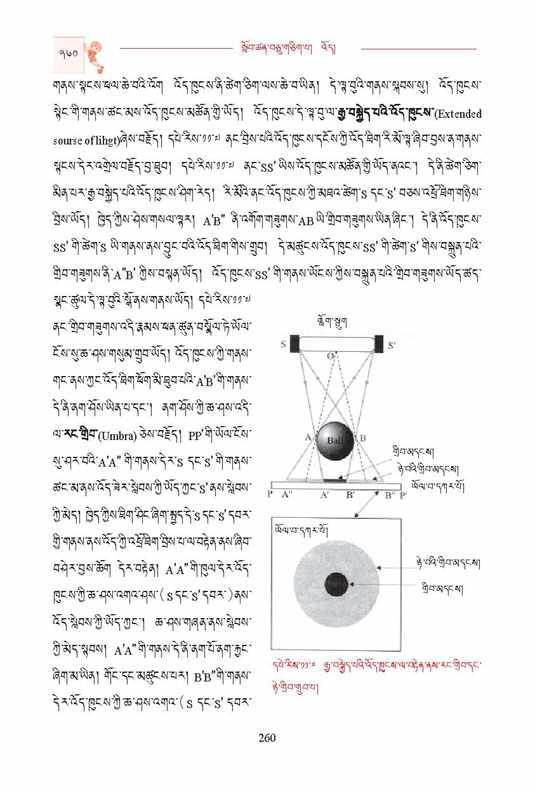 ༢༦༠
སློབ་ཚན་བཅུ་གཅིག་པ། འོད།
གནས་སྟངས་ཕལ་ཆེ་བའི་འོག འོད་ཁུངས་ནི་ཚེག་ཅིག་ལས་ཆེ་བ་ཡིན། དེ་ལྟ་བུའི་གནས་སྐབས་སུ། འོད་ཁུངས་
སྟེང་གི་གནས་ཚང་མས་འོད་ཁུངས་མཚོན་གྱི་ཡོད། འོད་ཁུངས་དེ་ལྟ་བུ་ལ་རྒྱ་བསྐྱེད་པའི་འོད་ཁུངས་(Extended
sourse of lihgt)ཞེས་བརྗོད། དཔེ་རིས་༡༡་༧ ནང་བྲིས་པའི་འོད་ཁུངས་དངོས་ཀྱི་འོད་ཟིག་རི་མོ་ལྟ་ཞིབ་བྱས་ན་གནས་
སྟངས་དེར་འགྲེལ་བརྗོད་བྱ་ཐུབ། དཔེ་རིས་༡༡་༧ ནང་SS' ཡིས་འོད་ཁུངས་མཚོན་གྱི་ཡོད་ནའང་། དེ་ནི་ཚེག་ཅིག་
མིན་པར་རྒྱ་བསྐྱེད་པའི་འོད་ཁུངས་ཤིག་རེད། རི་མོའི་ནང་འོད་ཁུངས་ཀྱི་མཐའ་ཚེག་S དང་S' བཅས་འཕྲོ་ཟིག་གཉིས་
བྲིས་ཡོད། ཁྱེད་ཀྱིས་ཤེས་གསལ་ལྟར། A'B" ནི་འགོག་གཟུགས་AB ཡི་གྲིབ་གཟུགས་ཡིན་ཞིང་། དེ་ནི་འོད་ཁུངས་
SS' གི་ཚེག་S ཡི་གནས་ནས་བྱུང་བའི་འོད་ཟིག་གིས་གྲུབ། དེ་མཚུངས་འོད་ཁུངས་SS' གི་ཚེག་S' གིས་བསྐྲུན་པའི་
གྲིབ་གཟུགས་ནི་A"B' ཀྱིས་བསྟན་ཡོད། འོད་ཁུངས་SS' གི་གནས་ཡོངས་ཀྱིས་བསྐྲུན་པའི་གྲིབ་གཟུགས་ཡོད་ཚད་
སྣང་ཚུལ་དེ་ལྟ་བུའི་སྒོ་ནས་གནས་ཡོད། དཔེ་རིས་༡༡་༧
ནང་གྲིབ་གཟུགས་འདི་རྣམས་ཕན་ཚུན་བསྣོལ་ཏེ་ཡོལ་
ངོས་སུ་ཆ་ཤས་གསུམ་གྲུབ་ཡོད། འོད་ཁུངས་ཀྱི་གནས་
གང་ནས་ཀྱང་འོད་ཟིག་ཕོག་མི་ཐུབ་པའི་A'B'གི་གནས་
དེ་ནི་ནག་ཤོས་ཡིན་པ་དང་། ནག་ཤོས་ཀྱི་ཆ་ཤས་འདི་
ལ་རང་གྲིབ་(Umbra) ཅེས་བརྗོད། PP'གི་ཡོལ་ངོས་
སུ་ཤར་བའི་A'A" གི་གནས་དེར་S དང་S'གི་གནས་
ཚང་མ་ནས་འོད་ཟེར་སླེབས་ཀྱི་ཡོད་ཀྱང་S'ནས་སླེབས་
ཀྱི་མེད། ཁྱེད་ཀྱིས་ཐིག་ཤིང་ཞིག་སྤྱད་དེ་S དང་S'དབར་
གྱི་གནས་ནས་འོད་ཀྱི་འཕྲོ་ཟིག་བྲིས་པ་ལ་བརྟེན་ནས་ཞིབ་
བཤེར་བྱས་ཆོག དེར་བརྟེན། A'A"གི་ཁུལ་དེར་འོད་
ཁུངས་ཀྱི་ཆ་ཤས་འགའ་ཤས་( S དང་S'དབར་)ནས་
འོད་སླེབས་ཀྱི་ཡོད་ཀྱང་། ཆ་ཤས་གཞན་ནས་སླེབས་
ཀྱི་མེད་སྟབས། A'A"གི་གནས་དེ་ནི་ནག་པོ་ནག་རྐྱང་
ཞིག་མ་ཡིན། གོང་དང་མཚུངས་པར། B'B"གི་གནས་
དེར་འོད་ཁུངས་ཀྱི་ཆ་ཤས་འགའ་( S དང་S' དབར་
གློག་སྦུག
S
S'
O
A
Ball
B
གྲིབ་མདངས།
ཉེ་བའི་གྲིབ་མདངས།
ཡོལ་བ་དཀར་པོ།
P
A"
A'
B'
B"
P'
ཡོལ་བ་དཀར་པོ།
ཉེ་བའི་གྲིབ་མདངས།
གྲིབ་མདངས།
དཔེ་རིས་༡༡་༧ རྒྱ་བསྐྱེད་པའི་འོད་ཁུངས་ལ་བརྟེན་ནས་རང་གྲིབ་དང་
ཉེ་གྲིབ་གྲུབ་པ།
260